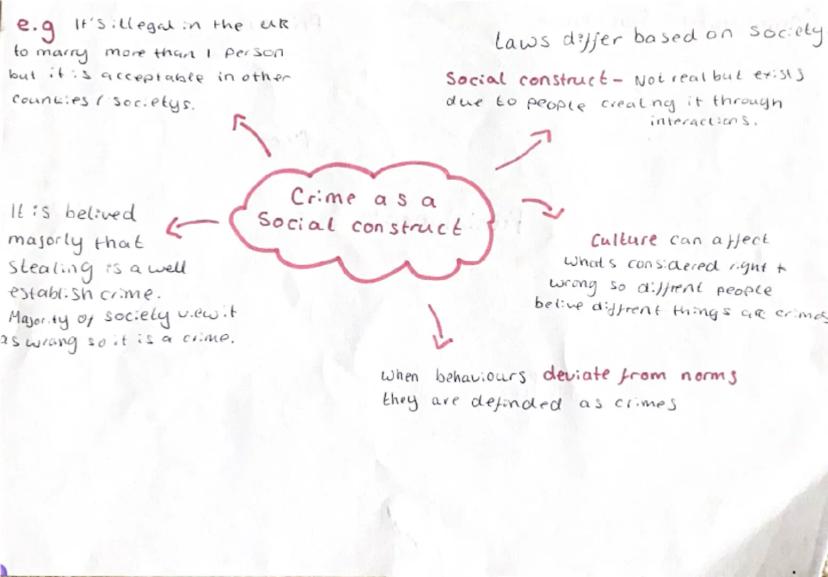 e.g It's illegal in the UK
to marry more than 1 person
but it is acceptable in other
countries / societys.
Laws differ based on society
Social construct - Not real but exists
due to people creating it through
interactions.
Crime as a
Social construct
It is belived
majorly that
stealing is a well
establish crime.
Majority of society view it
as wrong so it is a crime.
Culture can affect
whats considered right +
wrong so diffrent people
belive diffrent things are crimes
when behaviours deviate from norms
they are definded as crimes